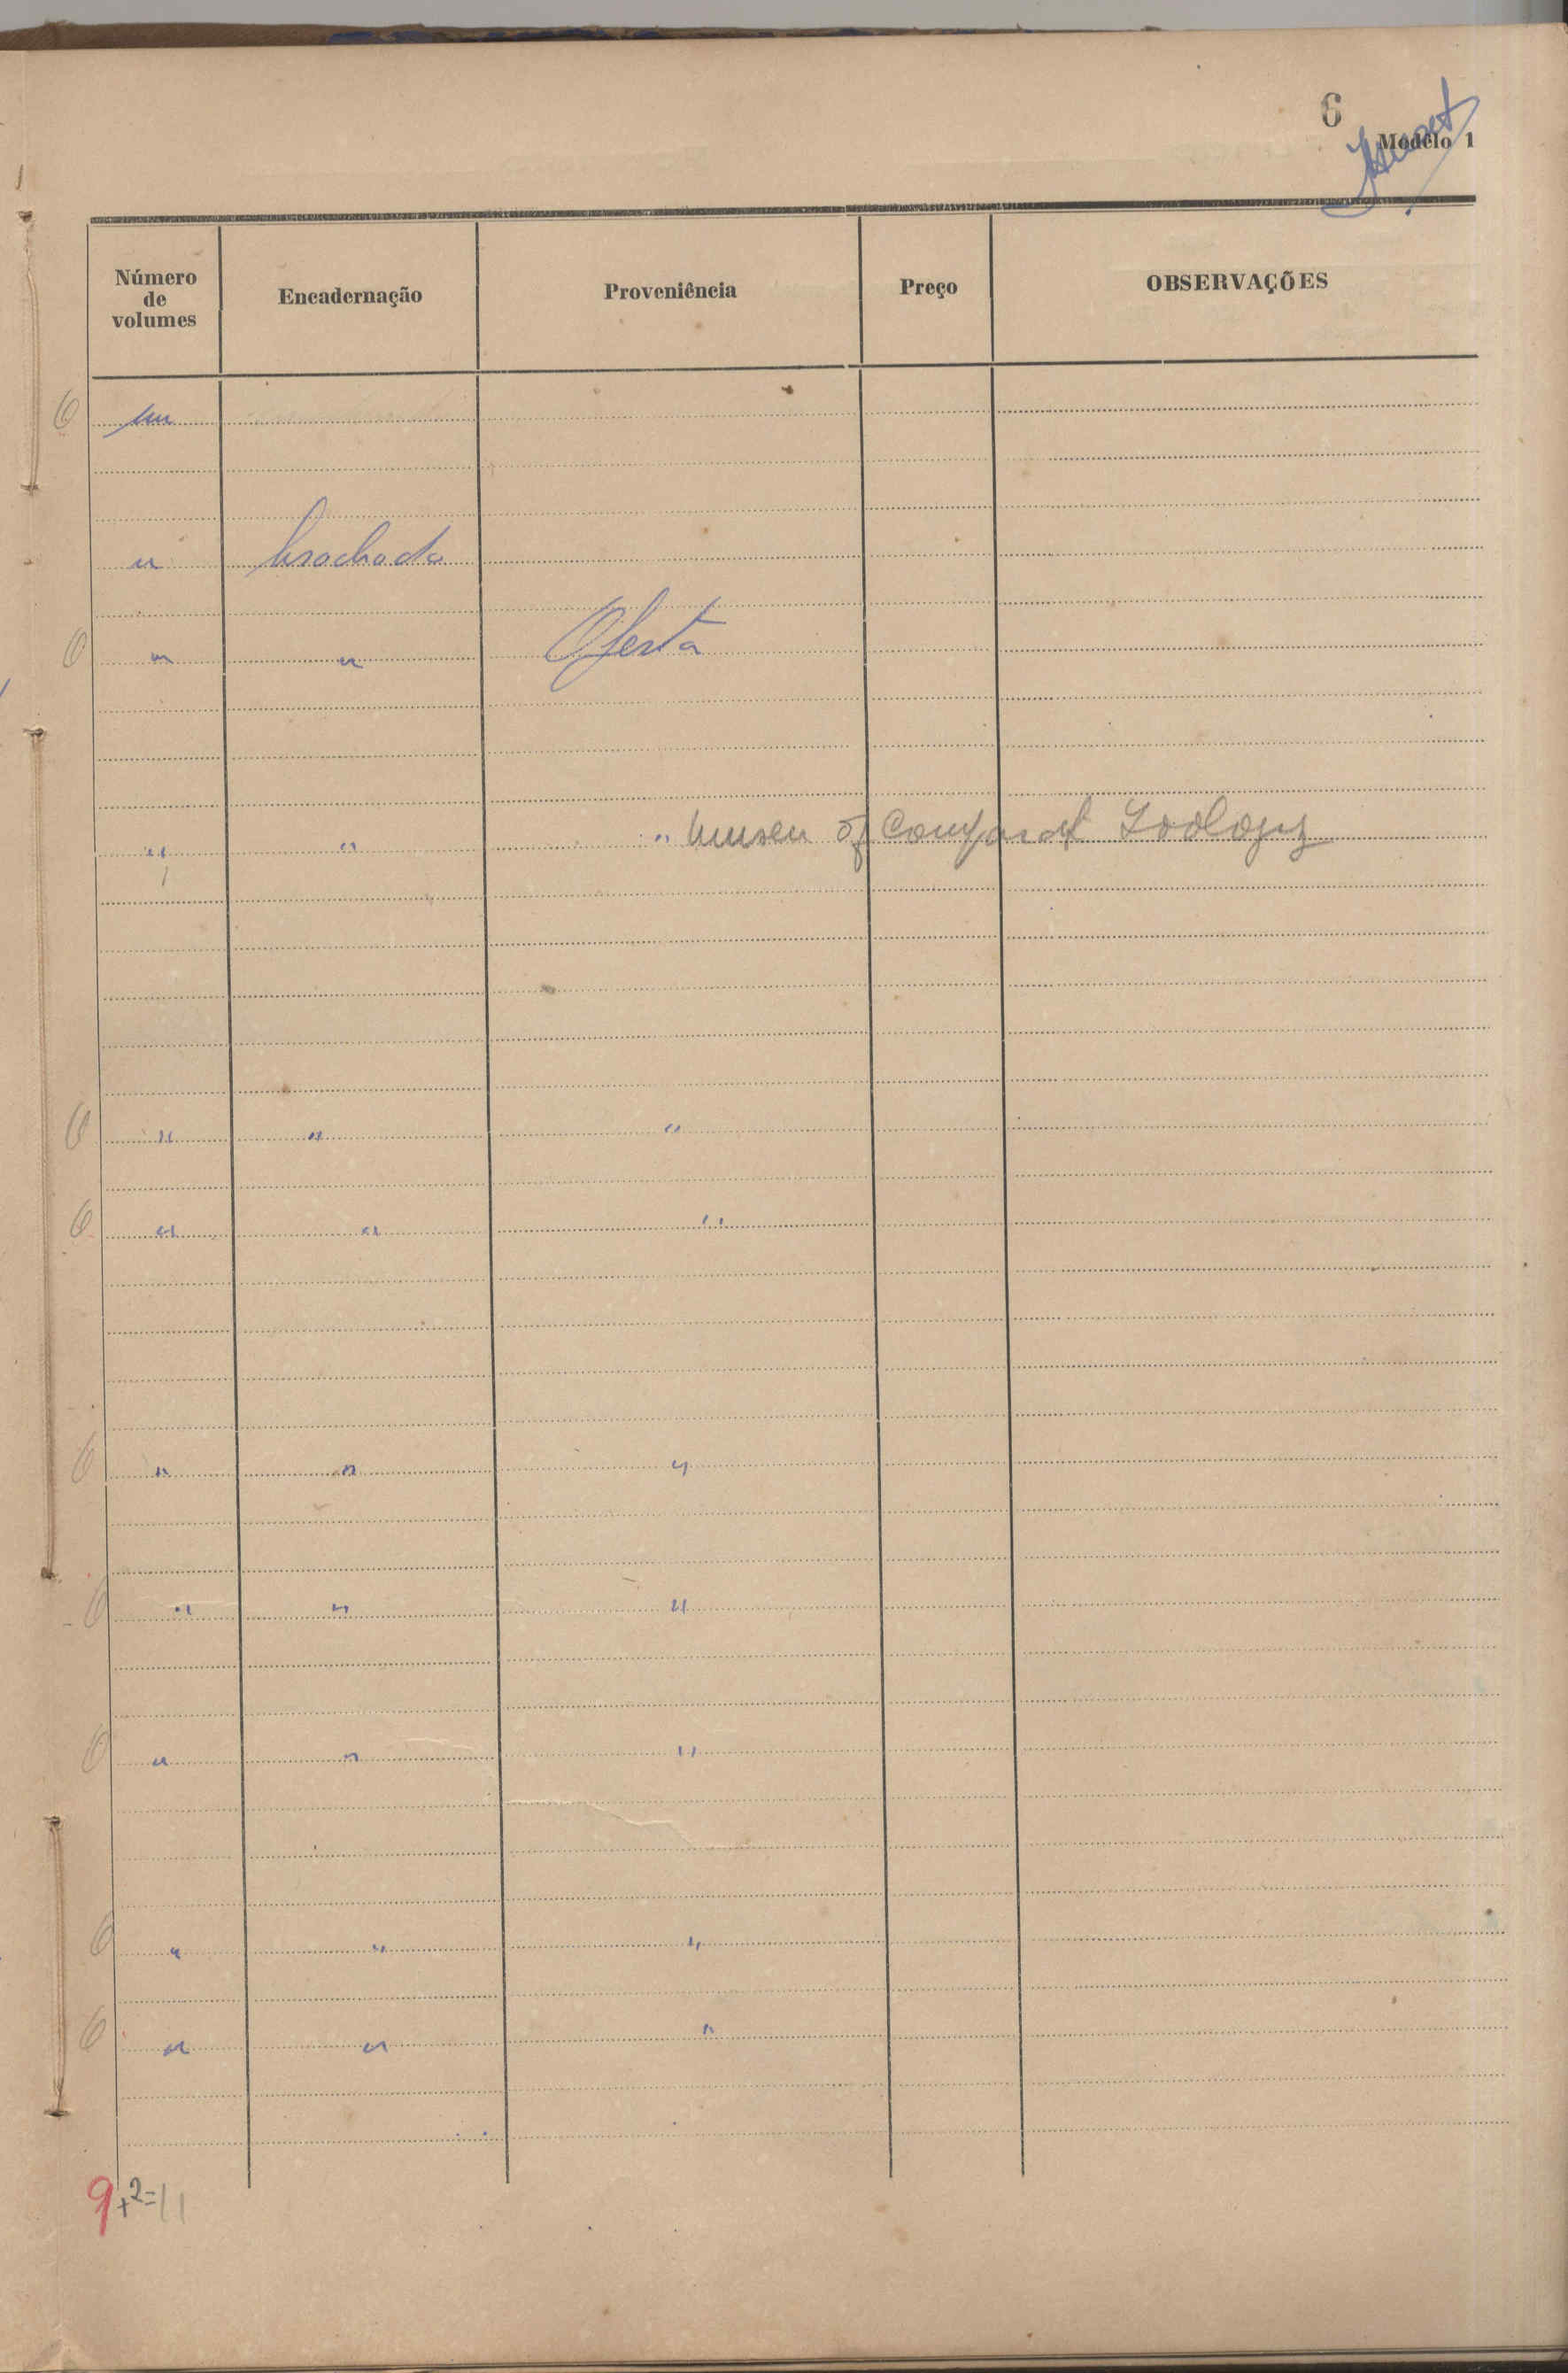 6
Modêlo 1
Número de volumes Encadernação Proveniência Preço OBSERVAÇÕES
um
" brochado
" " Oferta
" " " Museu of Comparat Zoology
" " "
" " "
" " "
" " "
" " "
" " "
" " "
9+2=11